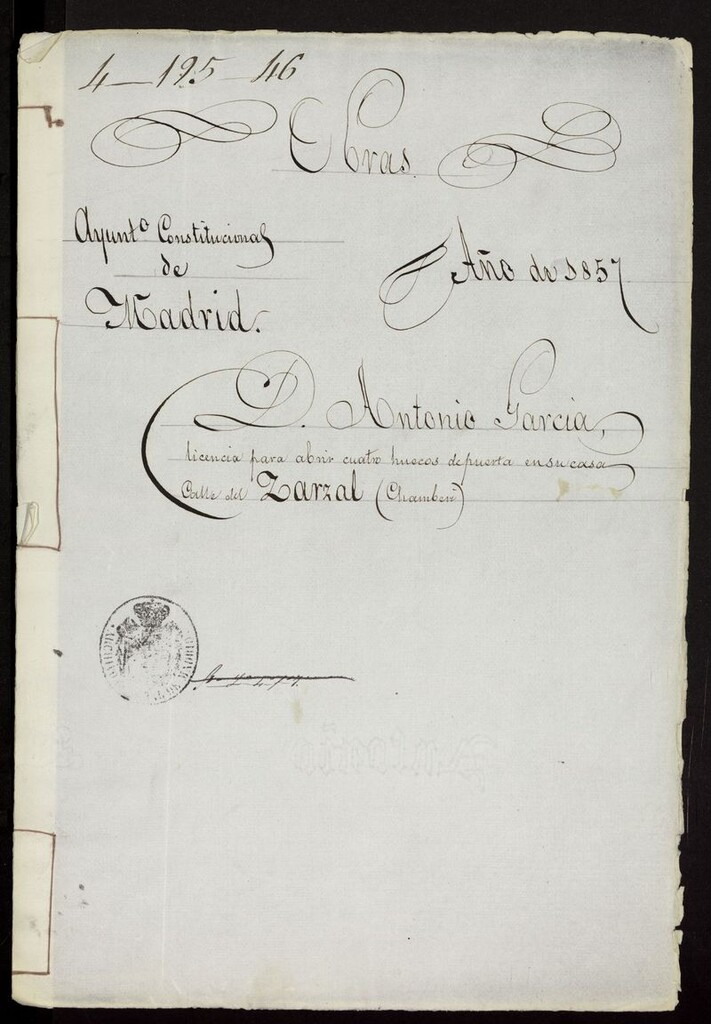 4-195-46
Obras.
Ayunto Constitucional
de
Madrid.
Año de 1857
D. Antonio Garcia,
licencia para abrir cuatro huecos de puerta en su casa
Calle del Zarzal (Chamberi)